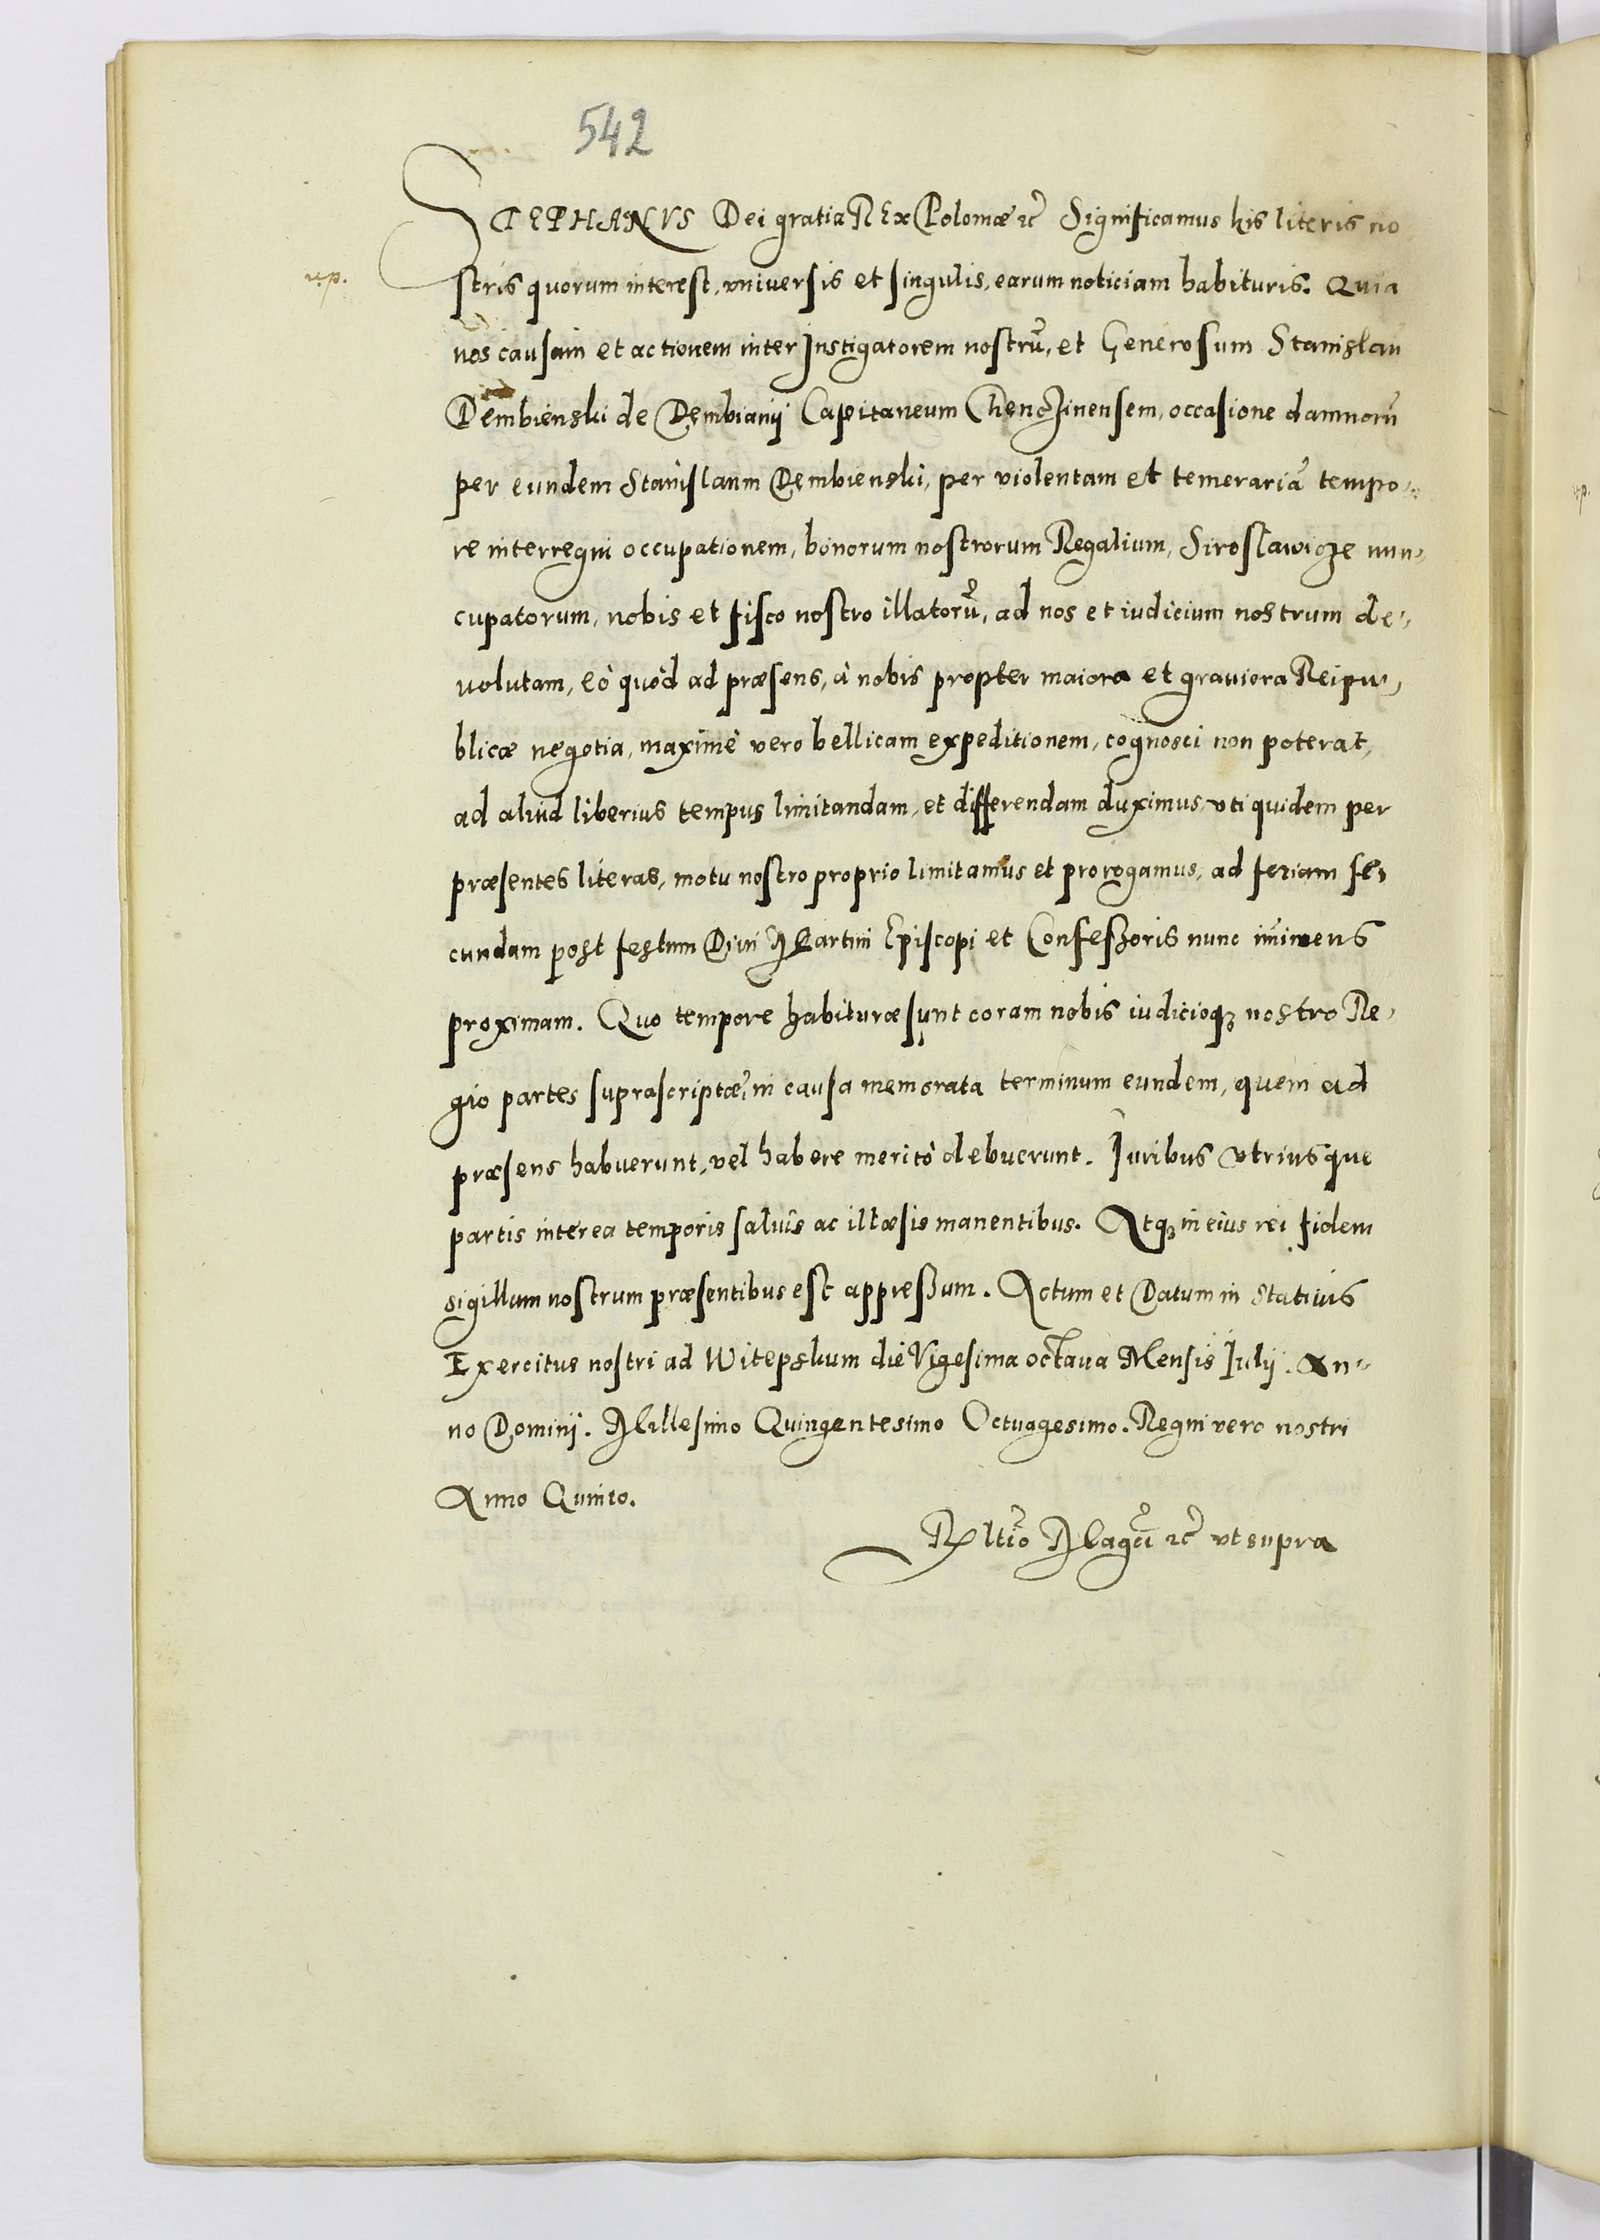 542
STEPHANVS Dei gratia REx Poloniæ ꝛc̃ Significamus his literis no
stris quorum interest, vniversis et singulis, earum noticiam habituris. Quia
nos causam et actionem inter Instigatorem nostrũ, et Generosum Stanislau
Dembienski de Dembianij Capitaneum Chenczinensem, occasione damnorũ
per eundem Stanislaum Dembienski, per violentam et temerariã tempo-
re interregni occupationem, bonorum nostrorum Regalium, Siroslawicze nun-
cupatorum, nobis et fisco nostro illatorũ, ad nos et iudicium nostrum de-
volutam, eò quòd ad præsens, à nobis propter maiora et graviora Reipu-
blicæ negotia, maximè vero bellicam expeditionem, cognosci non poterat,
ad aliud liberius tempus limitandam, et differendam duximus, vti quidem per
præsentes literas, motu nostro proprio limitamus et prorogamus, ad feriam se-
cundam post festum Divi Martini Episcopi et Confeßoris nunc im̃inens
proximam. Quo tempore habituræ sunt coram nobis iudicioqꝫ nostro Re-
gio partes suprascriptæ, in causa memorata terminum eundem, quem ad
præsens habuerunt, vel habere meritò debuerunt. Iuribus vtriusque
partis interea temporis salvis ac illæsis manentibus. Atqꝫ in eius rei fidem
sigillum nostrum præsentibus est appreßum. Actum et Datum in Stativis
Exercitus nostri ad Witepskum die Vigesima octava Mensis Iulij. An-
no Domini. Millesimo Quingentesimo Octuagesimo. Regni vero nostri
Anno Quinto.
Rltĩo Magcĩ ꝛc̃ vt supra